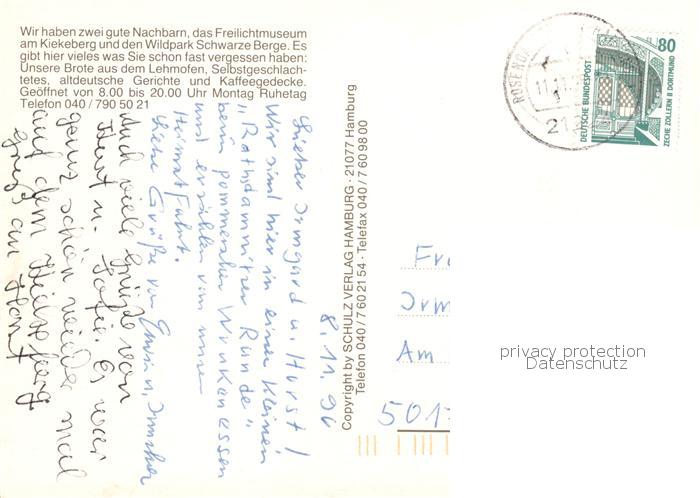 Wir haben zwei gute Nachbarn, das Freilichtmuseum
am Kiekeberg und den Wildpark Schwarze Berge. Es
gibt hier vieles was Sie schon fast vergessen haben:
Unsere Brote aus dem Lehmofen, Selbstgeschlach-
tetes, altdeutsche Gerichte und Kaffeegedecke.
Geöffnet von 8.00 bis 20.00 Uhr Montag Ruhetag
Telefon 040 / 790 50 21
8.11.96
Lieber Irmgard u. Horst!
Wir sind hier in einer kleinen
"Rathsdamnitzer Runde"
beim pommerschen
und erzählen von unserer
Heimatfahrt.
Liebe Grüße von Erwin u.
Auch viele Grüße von
Kurt u. Es war
ganz schön wieder mal
auf dem Kiekeberg
Gruß an Horst
Copyright by SCHULZ VERLAG HAMBURG · 21077 Hamburg
Telefon 040 / 7 60 21 54 · Telefax 040 / 7 60 98 00
DEUTSCHE BUNDESPOST
80
ZECHE ZOLLERN II DORTMUND
ROSENG
11.11.
212
Fr
Irm
Am
501
privacy protection
Datenschutz